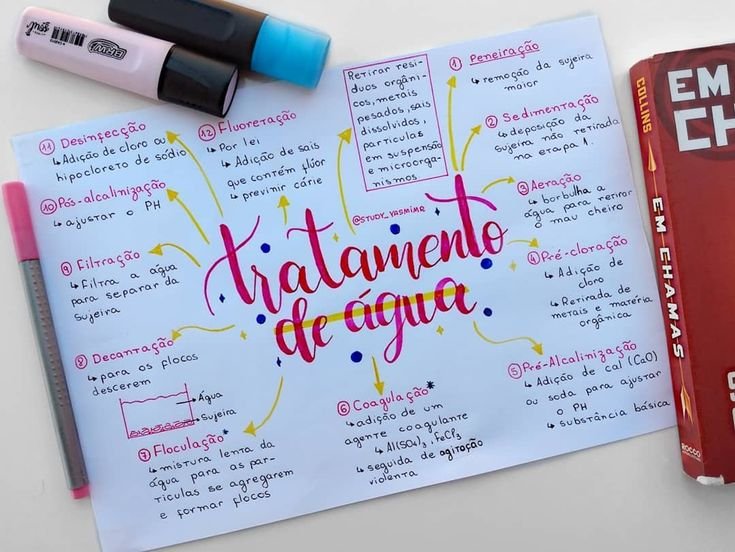 tratamento
de água
@STUDY_YASMIMR
Retirar resí-
duos orgâni-
cos, metais
pesados, sais
dissolvidos,
partículas
em suspensão
e microorga-
nismos
① Peneiração
↳ remoção da sujeira
maior
② Sedimentação
↳ deposição da
sujeira não retirada
na etapa 1.
③ Aeração
↳ borbulha a
água para retirar
o mau cheiro
④ Pré-cloração
↳ Adição de
cloro
↳ Retirada de
metais e matéria
orgânica
⑤ Pré-Alcalinização
↳ Adição de cal (CaO)
ou soda para ajustar
o PH
↳ substância básica
⑥ Coagulação*
↳ adição de um
agente coagulante
↳ Al(SO4)3, FeCl3
↳ seguida de agitação
violenta
⑦ Floculação*
↳ mistura lenta da
água para as par-
tículas se agregarem
e formar flocos
⑧ Decantação
↳ para os flocos
descerem
Água
Sujeira
⑨ Filtração
↳ Filtra a água
para separar da
sujeira
⑩ Pós-alcalinização
↳ ajustar o PH
⑪ Desinfecção
↳ Adição de cloro ou
hipocloreto de sódio
⑫ Fluoretação
↳ Por lei
↳ Adição de sais
que contém flúor
↳ previnir cárie
COLLINS
EM CHAMAS
ROCCO
EM
CH